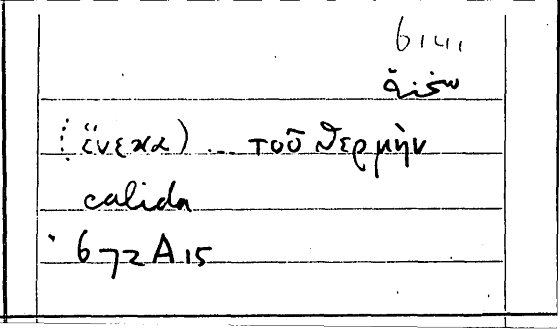 6141
سخنة
(ἕνεκα) ... τοῦ θερμὴν
calida
672A15